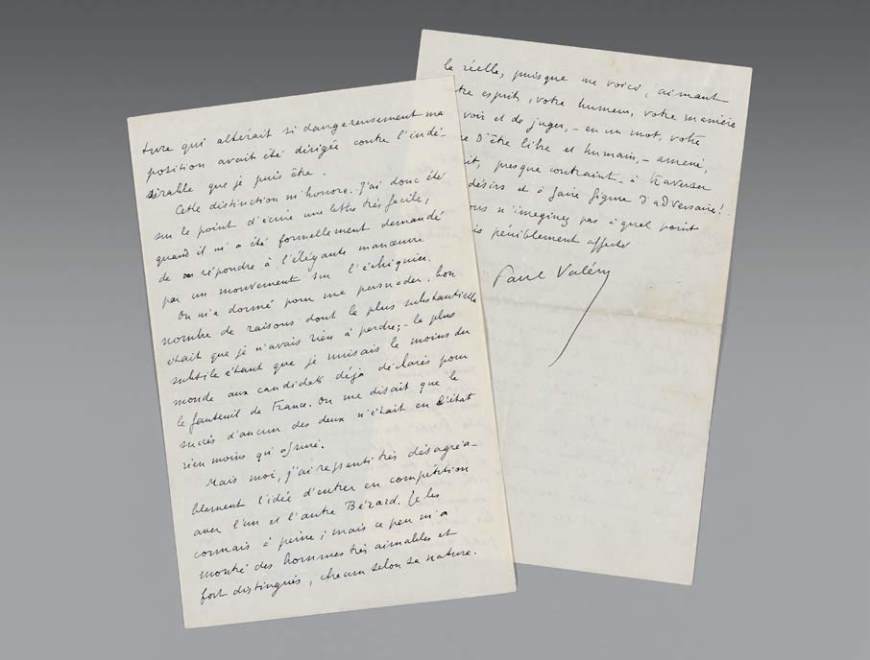 ture qui altérait si dangereusement ma
position avait été dirigée contre l'indé-
sirable que je puis être.
Cette distinction m'honore. J'ai donc été
sur le point d'écrire une lettre très facile,
quand il m'a été formellement demandé
de répondre à l'élégante manœuvre
par un mouvement sur l'échiquier.
On m'a donné pour me persuader, bon
nombre de raisons dont la plus substantielle
était que je n'avais rien à perdre; - la plus
subtile étant que je nuisais le moins du
monde aux candidats déjà déclarés pour
le fauteuil de France. On me disait que le
succès d'aucun des deux n'était en l'état
rien moins qu'assuré.
Mais moi, j'ai ressenti très désagréa-
blement l'idée d'entrer en compétition
avec l'un et l'autre Bérard. Je les
connais à peine; mais ce peu m'a
montré des hommes très aimables et
fort distingués, chacun selon sa nature.
le réelle, puisque me voici, aimant
tre esprit, votre humeur, votre manière
voir et de juger, - en un mot, votre
re d'être libre et humain, - amené,
it, presque contraint - à traverser
désirs et à faire figure d'adversaire!
ous n'imaginez pas à quel point
is péniblement affecté
Paul Valéry